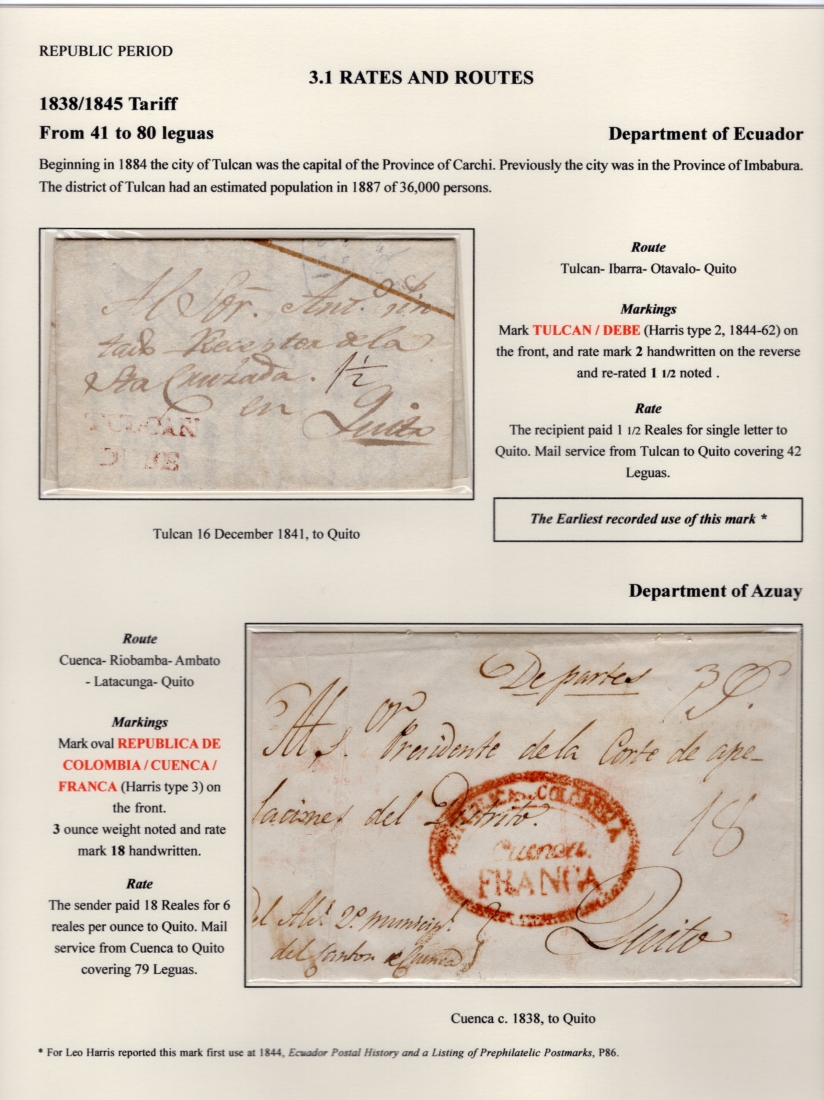 REPUBLIC PERIOD
3.1 RATES AND ROUTES
1838/1845 Tariff
From 41 to 80 leguas
Department of Ecuador
Beginning in 1884 the city of Tulcan was the capital of the Province of Carchi. Previously the city was in the Province of Imbabura.
The district of Tulcan had an estimated population in 1887 of 36,000 persons.
Al Sor. Ant.
Receptor de la
Sta Cruzada. 1½
en Quito
TULCAN
DEBE
Tulcan 16 December 1841, to Quito
Route
Tulcan- Ibarra- Otavalo- Quito
Markings
Mark TULCAN / DEBE (Harris type 2, 1844-62) on
the front, and rate mark 2 handwritten on the reverse
and re-rated 1 1/2 noted .
Rate
The recipient paid 1 1/2 Reales for single letter to
Quito. Mail service from Tulcan to Quito covering 42
Leguas.
The Earliest recorded use of this mark *
Department of Azuay
Route
Cuenca- Riobamba- Ambato
- Latacunga- Quito
Markings
Mark oval REPUBLICA DE
COLOMBIA / CUENCA /
FRANCA (Harris type 3) on
the front.
3 ounce weight noted and rate
mark 18 handwritten.
Rate
The sender paid 18 Reales for 6
reales per ounce to Quito. Mail
service from Cuenca to Quito
covering 79 Leguas.
De partes
Al Sor Presidente de la Corte de ape-
laciones del Distrito.
18
REPUBLICA DE COLOMBIA
Cuenca.
FRANCA
Quito
del Canton de Cuenca
Cuenca c. 1838, to Quito
* For Leo Harris reported this mark first use at 1844, Ecuador Postal History and a Listing of Prephilatelic Postmarks, P86.